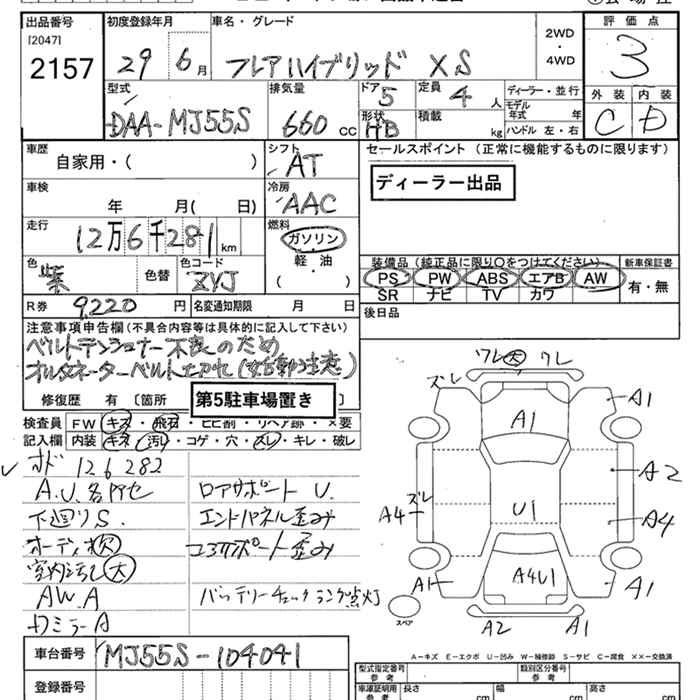 出品番号
[2047]
2157
初度登録年月
29年 6月
車名・グレード
フレアハイブリッド XS
2WD
・
4WD
評価点
3
外装 内装
C D
型式
DAA-MJ55S
排気量
660 cc
ドア 5
形状 HB
定員 4 人
積載 kg
ディーラー・並行
モデル年式 年
ハンドル 左・右
車歴
自家用・( )
シフト
AT
セールスポイント (正常に機能するものに限ります)
ディーラー出品
車検
年 月( 日)
冷房
AAC
走行
12万6千281km
燃料
ガソリン
軽・油
( )
色
紫
色替
色コード
ZVJ
装備品 (純正品に限り○をつけてください)
新車保証書
PS PW ABS エアB AW
SR ナビ TV カワ
有・無
R券 9,220円
名変通知期限 月 日
後日品
注意事項申告欄(不具合内容等は具体的に記入して下さい)
ベルトテンショナー不良のため
オルタネーターベルト
修復歴 有 [箇所
第5駐車場置き
検査員記入欄
FW キズ・飛石・ヒビ割・リペア跡・×要
内装 キズ・汚レ・コゲ・穴・スレ・キレ・破レ
126282
A.U.各所
下廻りS.
オーディオ欠
室内汚れ大
AW.A
カミラーA
ロアサポートU.
エンドパネル歪み
コアサポート歪み
バッテリーチェックランプ点灯
ワレ大 ワレ
ズレ
A1
A1
A2
ズレ
A4
U1
A4
A4U1
A1
A1
スペア
A2
A1
A-キズ E-エクボ U-凹み W-補修跡 S-サビ C-腐食 XX-交換済
車台番号
MJ55S-104041
登録番号
型式指定番号
参考
類別区分番号
参考
車庫証明用
参考
長さ cm
幅 cm
高さ cm